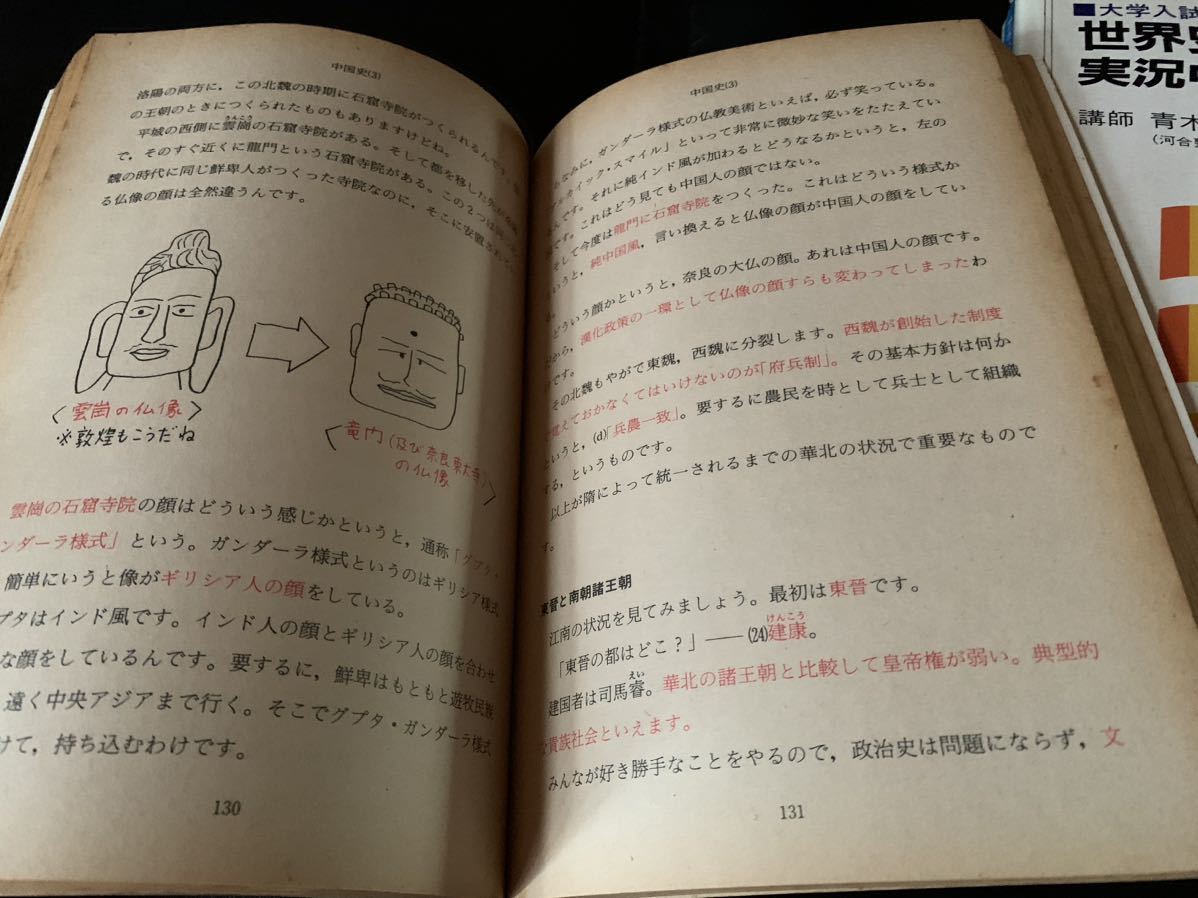 中国史(3)
洛陽の両方に，この北魏の時期に石窟寺院がつくられるんです。
の王朝のときにつくられたものもありますけどね。
平城の西側に雲崗の石窟寺院がある。そして都を移した先が
うんこう
で，そのすぐ近くに龍門という石窟寺院がある。この2つは同
魏の時代に同じ鮮卑人がつくった寺院なのに，そこに安置されて
る仏像の顔は全然違うんです。
〈雲崗の仏像〉
※敦煌もこうだね
〈竜門(及び奈良東大寺)
の仏像〉
雲崗の石窟寺院の顔はどういう感じかというと，通称「グプタ・
ンダーラ様式」という。ガンダーラ様式というのはギリシア様式
簡単にいうと像がギリシア人の顔をしている。
プタはインド風です。インド人の顔とギリシア人の顔を合わせ
な顔をしているんです。要するに，鮮卑はもともと遊牧民族
遠く中央アジアまで行く。そこでグプタ・ガンダーラ様式
けて，持ち込むわけです。
130
中国史(3)
なみに，ガンダーラ様式の仏教美術といえば，必ず笑っている。
カイック・スマイル」といって非常に微妙な笑いをたたえてい
んです。それに純インド風が加わるとどうなるかというと，左の
です。これはどう見ても中国人の顔ではない。
そして今度は龍門に石窟寺院をつくった。これはどういう様式か
いうと，純中国風，言い換えると仏像の顔が中国人の顔をしてい
どういう顔かというと，奈良の大仏の顔。あれは中国人の顔です。
から，漢化政策の一環として仏像の顔すらも変わってしまったわ
です。
その北魏もやがて東魏，西魏に分裂します。西魏が創始した制度
覚えておかなくてはいけないのが「府兵制」。その基本方針は何か
というと，(d)「兵農一致」。要するに農民を時として兵士として組織
する，というものです。
以上が隋によって統一されるまでの華北の状況で重要なもので
す。
東晉と南朝諸王朝
江南の状況を見てみましょう。最初は東晉です。
「東晉の都はどこ？」——(24)建康。
けんこう
建国者は司馬睿。華北の諸王朝と比較して皇帝権が弱い。典型的
えい
な貴族社会といえます。
みんなが好き勝手なことをやるので，政治史は問題にならず，文
131
■大学入試
世界史
実況中
講師 青木
(河合塾